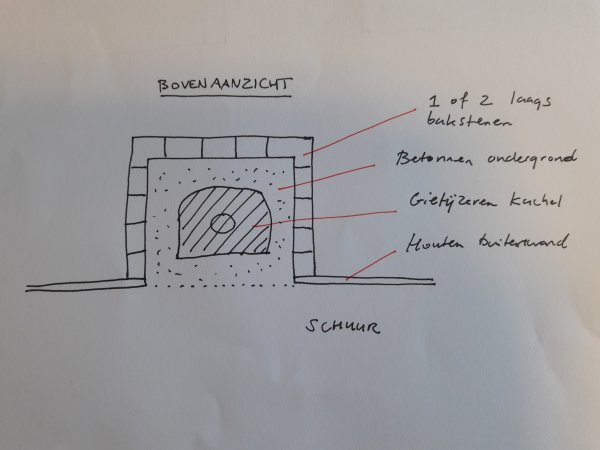 BOVENAANZICHT
1 of 2 laags
bakstenen
Betonnen ondergrond
Gietijzeren kachel
Houten buitenwand
SCHUUR